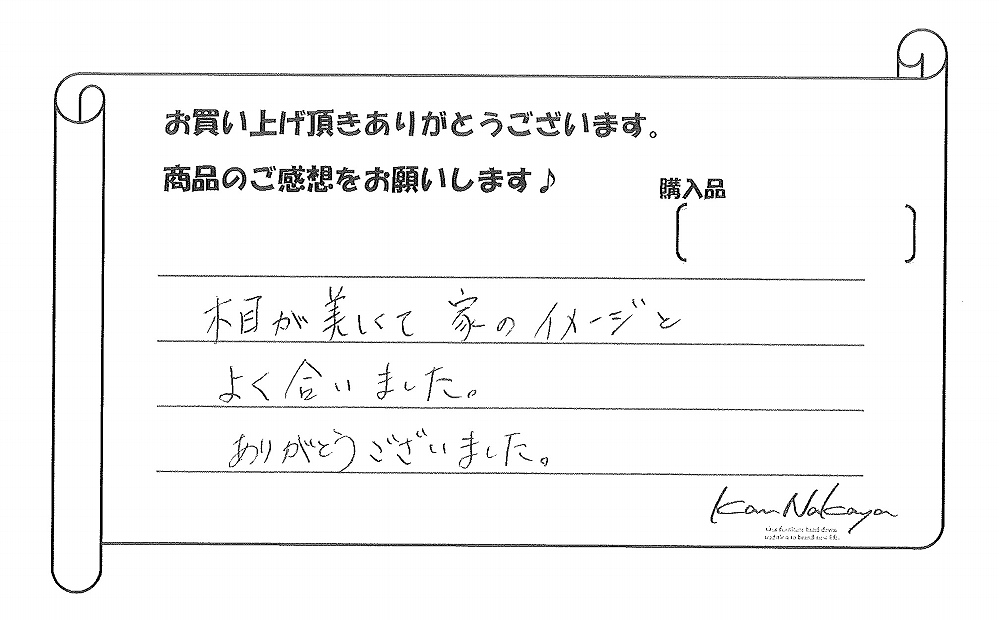 お買い上げ頂きありがとうございます。
商品のご感想をお願いします♪
購入品
木目が美しくて 家の イメージと
よく合いました。
ありがとうございました。
Kan Nakaya